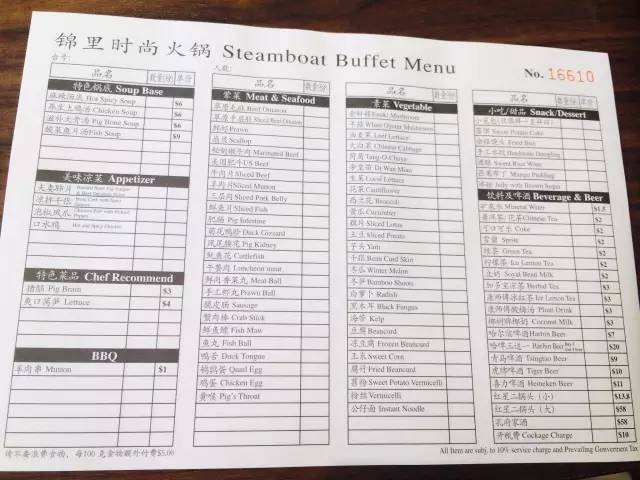 锦里时尚火锅 Steamboat Buffet Menu
No. 16610
台号: 人数:
品名 数量/份 单价
特色锅底 Soup Base
麻辣汤底 Hot Spicy Soup $6
养生土鸡汤 Chicken Soup $6
滋补大骨汤 Pig Bone Soup $6
酸菜鱼片汤 Fish Soup $9
美味凉菜 Appetizer
夫妻肺片
凉拌牛信
泡椒凤爪
口水鸡
特色菜品 Chef Recommend
猪脑 Pig Brain $3
爽口莴笋 Lettuce $4
BBQ
羊肉串 Mutton $1
请不要浪费食物，每100克食物额外付费$5.00
品名
荤菜 Meat & Seafood
草原毛肚 Beef Omasum
鲜虾 Prawn
扇贝 Scallop
秘制嫩牛肉 Marinated Beef
美国肥牛 US Beef
牛肉片 Sliced Beef
羊肉片 Sliced Mutton
三层肉 Sliced Pork Belly
鲜鱼片 Sliced Fish
肥肠 Pig Intestine
菊花鸭胗 Duck Gizzard
凤尾腰花 Pig Kidney
鱿鱼花 Cuttlefish
午餐肉 Luncheon meat
鲜肉香菜丸 Meat Ball
手工虾丸 Prawn Ball
脆皮肠 Sausage
蟹肉棒 Crab Stick
鲜鱼鳔 Fish Maw
鱼丸 Fish Ball
鸭舌 Duck Tongue
鹌鹑蛋 Quail Egg
鸡蛋 Chicken Egg
黄喉 Pig's Throat
品名
素菜 Vegetable
金针菇 Enoki Mushroom
White Oyster Mushroom
油麦菜 Leaf Lettuce
大白菜 Chinese Cabbage
茼蒿 Tang-O-Chaye
帝皇苗 Di Wan Miao
生菜 Local Lettuce
花菜 Cauliflower
西兰花 Broccoli
黄瓜 Cucumber
藕片 Sliced Lotus
土豆 Sliced Potato
芋头 Yam
千张 Bean Curd Skin
冬瓜 Winter Melon
冬笋 Bamboo Shoots
白萝卜 Radish
黑木耳 Black Fungus
海带 Kelp
豆腐 Beancurd
冻豆腐 Frozen Beancurd
玉米 Sweet Corn
腐竹 Fried Beancurd
薯粉 Sweet Potato Vermicelli
粉丝 Vermicelli
公仔面 Instant Noodle
品名 数量/份 单价
小吃/甜品 Snack/Desserrt
Sweet Potato Cake
Fried Bun
Handmade Dumpling
Sweet Rice Wine
芒果布丁 Mango Pudding
冰粉 Jelly with Brown Sugar
饮料及啤酒 Beverage & Beer
矿泉水 Mineral Water $1.5
菊花茶/花茶 Chinese Tea $2
可口可乐 Coke $2
雪碧 Sprite $2
绿茶 Green Tea $2
柠檬茶 Ice Lemon Tea $2
豆奶 Soyal Bean Milk $2
加多宝凉茶 Herbal Tea $3
康师傅冰红茶 Ice Lemon Tea $3
康师傅酸梅汤 Plum Drink $3
椰树牌椰奶 Coconut Milk $3
哈尔滨啤酒 Harbin Beer $7
哈啤五送一 Harbin Beer $20
青岛啤酒 Tsingtao Beer $9
虎牌啤酒 Tiger Beer $10
喜力啤酒 Heineken Beer $11
红星二锅头 (小) $13.8
红星二锅头 (大) $58
孔府家酒 $58
开瓶费 Cockage Charge $10
All Item are subj. to 10% service charge and Prevailing Gonverment Tax